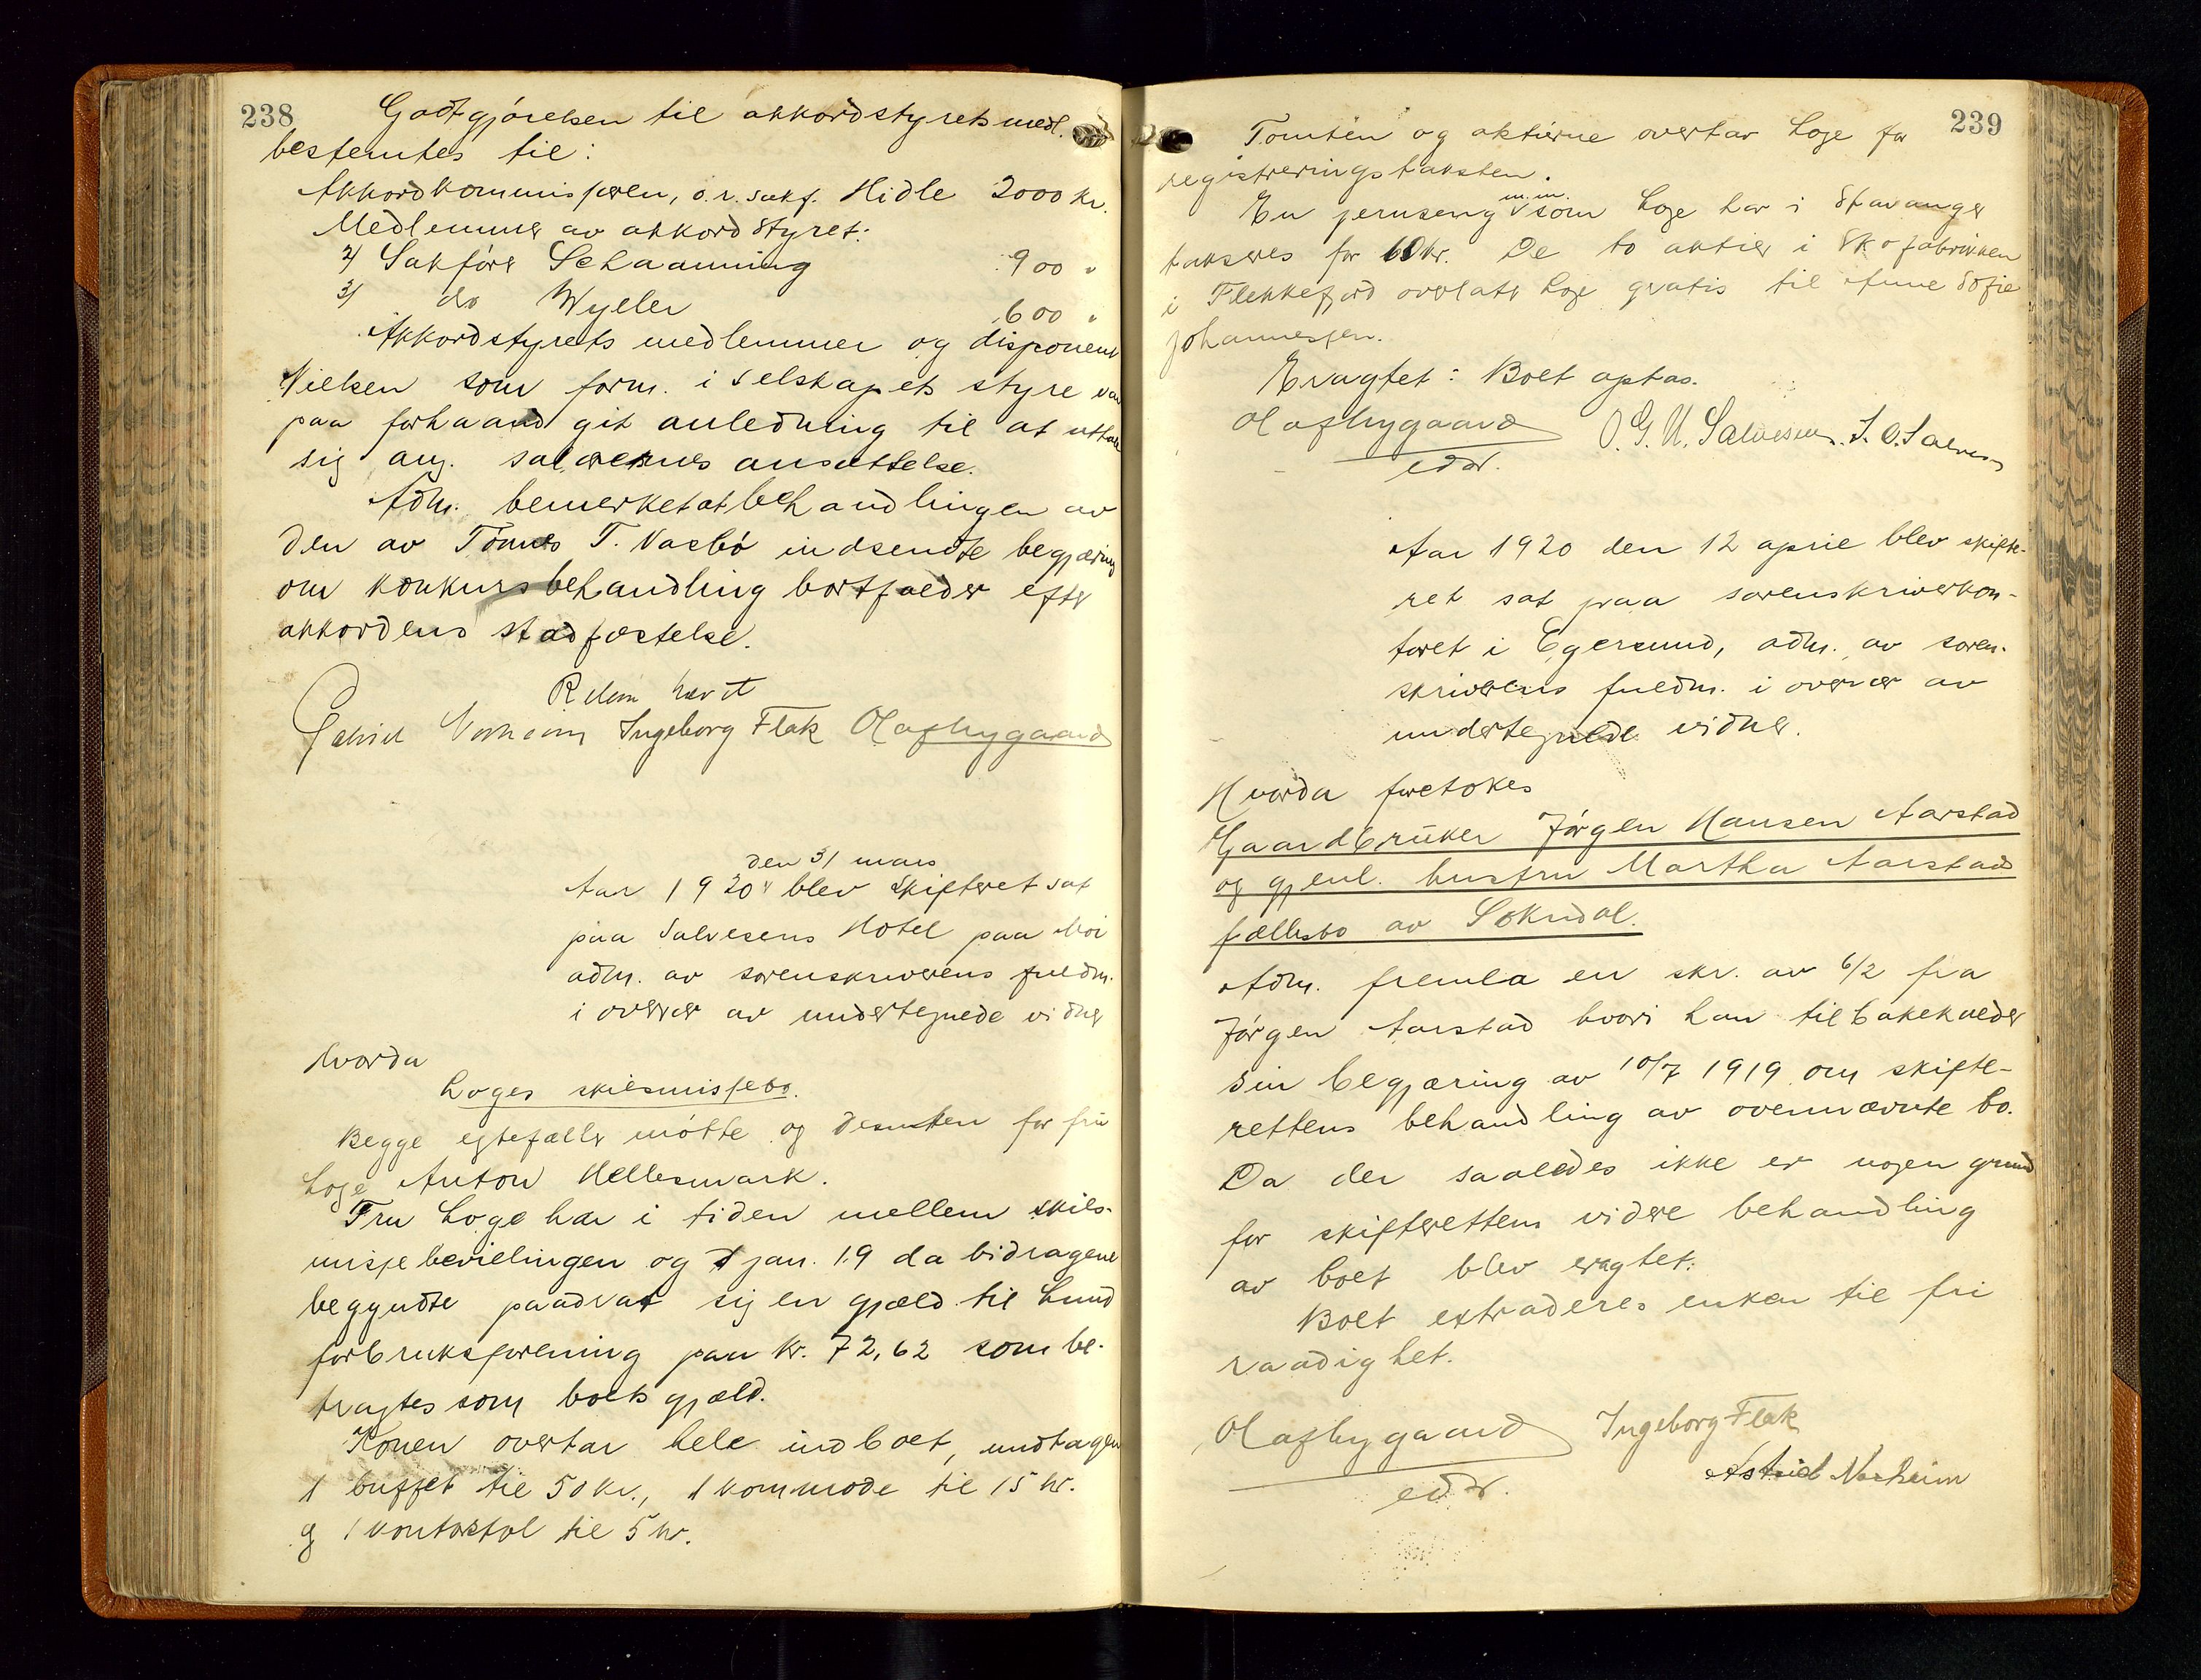 238
Godtgjørelsen til akkordstyrets medl.
bestemtes til:
Akkordkommissæren, o.r.sakf. Hidle 2000 kr.
Medlemmer av akkordstyret:
2/ Sakfører Schaanning 900 "
3/ do Wyller 600 "
Akkordstyrets medlemmer og disponent
Nielsen som form. i selskapets styre var
paa forhaand git anledning til at uttale
sig ang. salærernes ansættelse.
Adm. bemerket at behandlingen av
den av Tønnes T. Vasbø indsendte begjæring
om konkursbehandling bortfalder efter
akkordens stadfæstelse.
Retten hævet
Astrid Norheim Ingeborg Flak Olaf Nygaard
den 31 mars
Aar 1920 blev skifteret sat
paa Salvesens Hotel paa Moi
adm. av sorenskriverens fuldm.
i overvær av undertegnede vidner
hvorda
Loges skilsmissebo.
Begge egtefæller møtte og desuten for fru
Loge Anton Hellesmark.
Fru Loge har i tiden mellem skils-
missebevilingen og 1 jan. 19 da bidragene
begyndte paadrat sig en gjæld til Lund
forbruksforening paa kr. 72,62 som be-
tragtes som boets gjæld.
Konen overtar hele indboet, undtagen
1 buffet til 50 kr., 1 kommode til 15 kr.
og 1 kontorstol til 5 kr.
239
Tomten og aktierne overtar Loge for
registreringstaksten.
m.m.
En jernseng som Loge har i Stavanger
takseres for 60 kr. De to aktier i Skofabrikken
i Flekkefjord overlater Loge gratis til Anne Sofie
Johannessen.
Eragtet: Boet optas.
Olaf Nygaard O. G. U. Salvesen. S. O. Salvesen
edsv.
Aar 1920 den 12 april blev skifte-
ret sat paa sorenskriverkon-
toret i Egersund, adm. av soren-
skriverens fuldm. i overvær av
undertegnede vidner.
Hvorda foretokes
Gaardbruker Jørgen Hansen Aarstad
og gjenl. hustru Martha Aarstad
fællesbo av Sokndal.
Adm. fremla en skr. av 6/2 fra
Jørgen Aarstad hvori han tilbakekalder
sin begjæring av 10/7 1919 om skifte-
rettens behandling av ovennævnte bo.
Da der saaledes ikke er nogen grund
for skifterettens videre behandling
av boet blev eragtet:
Boet extraderes enken til fri
raadighet.
Olaf Nygaard Ingeborg Flak
edsv. Astrid Norheim